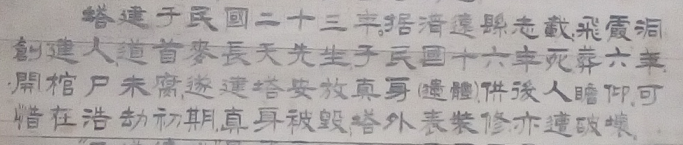 塔建于民國二十三年.据清遠縣志載,飛霞洞
創建人道首麥長天先生于民國十六年死葬六年.
開棺尸未腐遂建塔安放真身(遺體)供後人瞻仰,可
惜在浩劫初期,真身被毀,塔外表裝修亦遭破壞.